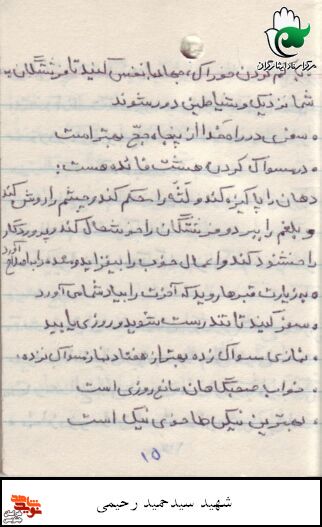 مرکز اسناد ایثارگران
با کم کردن خوراک، جهاد با نفس کنید تا فرشتگان به
شما نزدیک و شیاطین دور شوند
• سفری در راه خدا از پنجاه حج بهتر است
• در مسواک کردن هشت فائده هست:
دهان را پاکیزه کند و لثه را محکم کند و چشم را روشن کند
و بلغم را ببرد و فرشتگان را خوشحال کند و پروردگار
را خشنود کند و اعمال خوب را بیفزاید و معده را باصلاح آورد
• به زیارت قبرها روید که آخرت را بیاد شما می آورد
• سفر کنید تا تندرست شوید و روزی یابید
• نمازی مسواک زده بهتر از هفتاد نماز مسواک نزده.
• خواب صبحگاهان مانع روزی است
• بهترین نیکی ها خوی نیک است
۱۵
شهید سیدحمید رحیمی